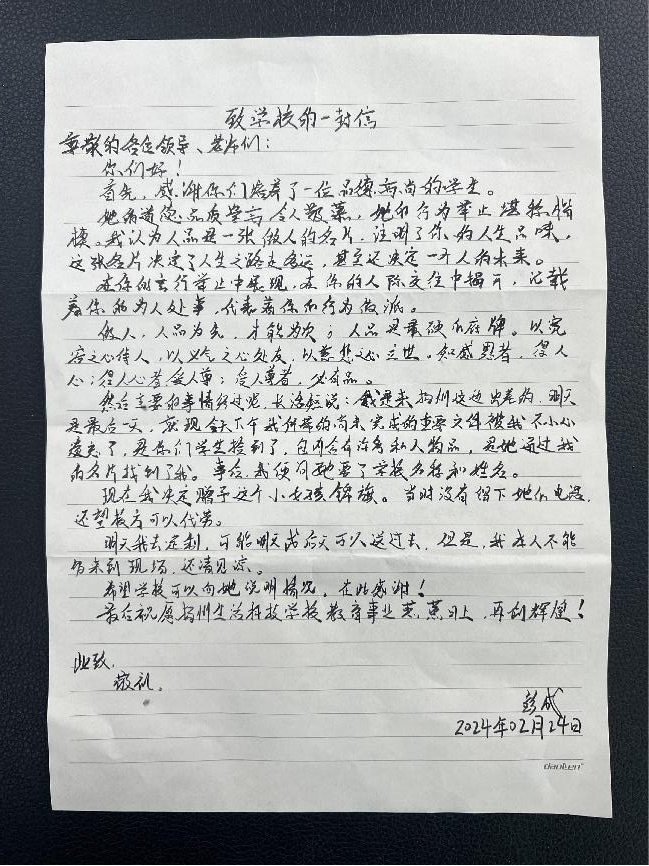 致学校的一封信
尊敬的各位领导、老师们：
你们好！
首先，感谢你们培养了一位品德高尚的学生。
她的道德品质堂高令人敬慕，她的行为举止堪称楷
模。我认为人品是一张做人的名片，注明了你的人生品味，
这张名片决定了人生之路走多远，甚至还决定一个人的未来。
在你的言行举止中展现，在你的人际交往中揭示，记载
着你的为人处事，代表着你的行为做派。
做人，人品为先，才能为次；人品是最硬的底牌。以宽
容之心待人，以义气之心处友，以慈悲之心立世。知感恩者，得人
心；得人心者受人尊；受人尊者，必有品。
然后主要的事情经过呢，长话短说：我来扬州这边出差的，明天
是最后一天，发现今天下午我所带的尚未完成的重要文件被我不小心
丢了，是你们学生捡到了，包内含有许多私人物品，是她通过我
的名片找到了我。事后，我便向她要了学校名称和姓名。
现在我决定赠予这个小女孩锦旗。当时没有留下她们电话，
还望校方可以代劳。
明天我去定制，可能明天或后天可以送过去，但是，我本人不能
来到现场，还请见谅。
希望学校可以向她说明情况。在此感谢！
最后祝愿扬州生活科技学校教育事业蒸蒸日上，再创辉煌！
此致，
敬礼。
彭成
2024年02月24日